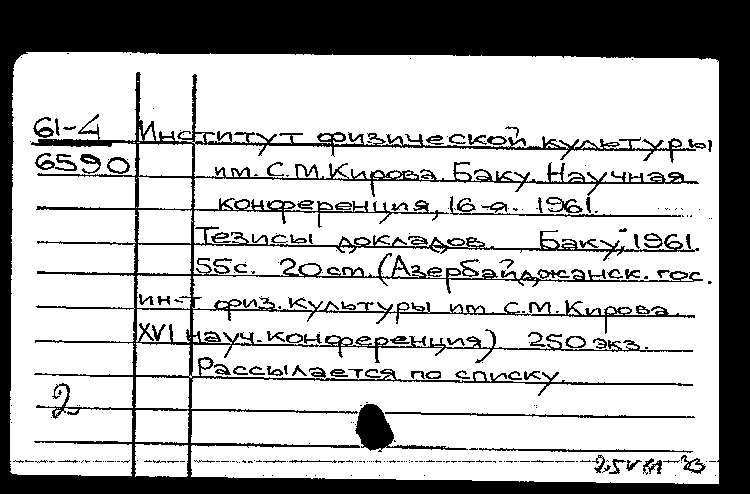 61-4 Институт физической культуры
6590 им. С.М.Кирова. Баку. Научная
конференция, 16-я. 1961.
Тезисы докладов. Баку, 1961.
55с. 20см. (Азербайджанск. гос.
ин-т физ. культуры им. С.М.Кирова.
XVI науч. конференция) 250 экз.
Рассылается по списку.
2